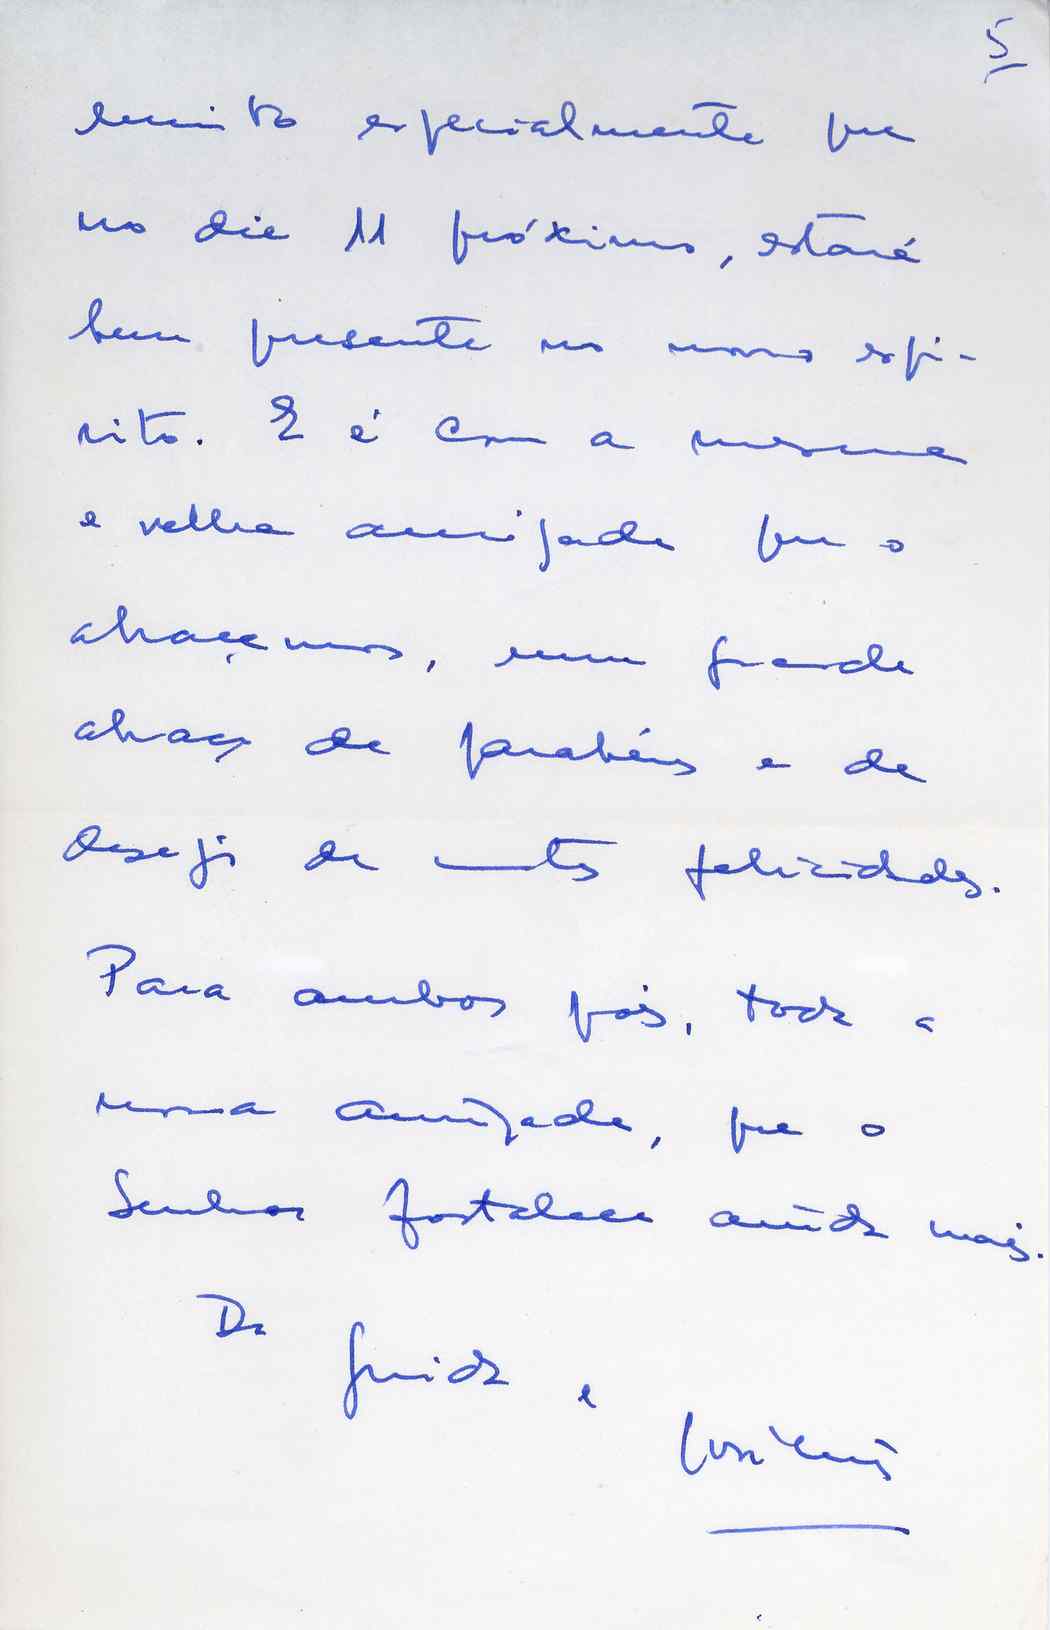 5
muito especialmente que
no dia 11 próximo, estará
bem presente no nosso espí-
rito. E é com a mesma
e velha amizade que o
abraçamos, num grande
abraço de parabéns e de
desejo de muitas felicidades.
Para ambos vós, toda a
nossa amizade, que o
Senhor fortalece ainda mais.
Da Guida e
José Luís